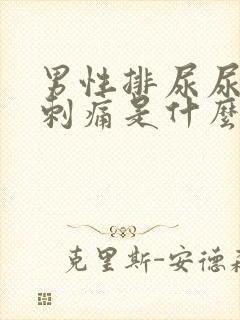 男性排尿尿
刺痛是什麼
克里斯-安德森